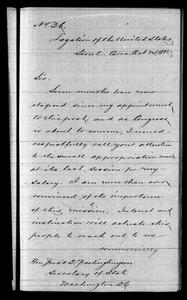 No. 26.
Legation of the United States,
Seoul, Corea, Oct
Sir:
Seven months has now
elapsed since my appointment
to this post, and as Congress
is about to convene, I would
respectfully call your attention
to the small appropriation made
at its last session for my
salary. I am more than ever
convinced of the importance
of this mission. Interest and
will actuate this
people to reach out to us
commercially
Hon. Fredk T. Frelinghuysen
Secretary of State
Washington D.C.